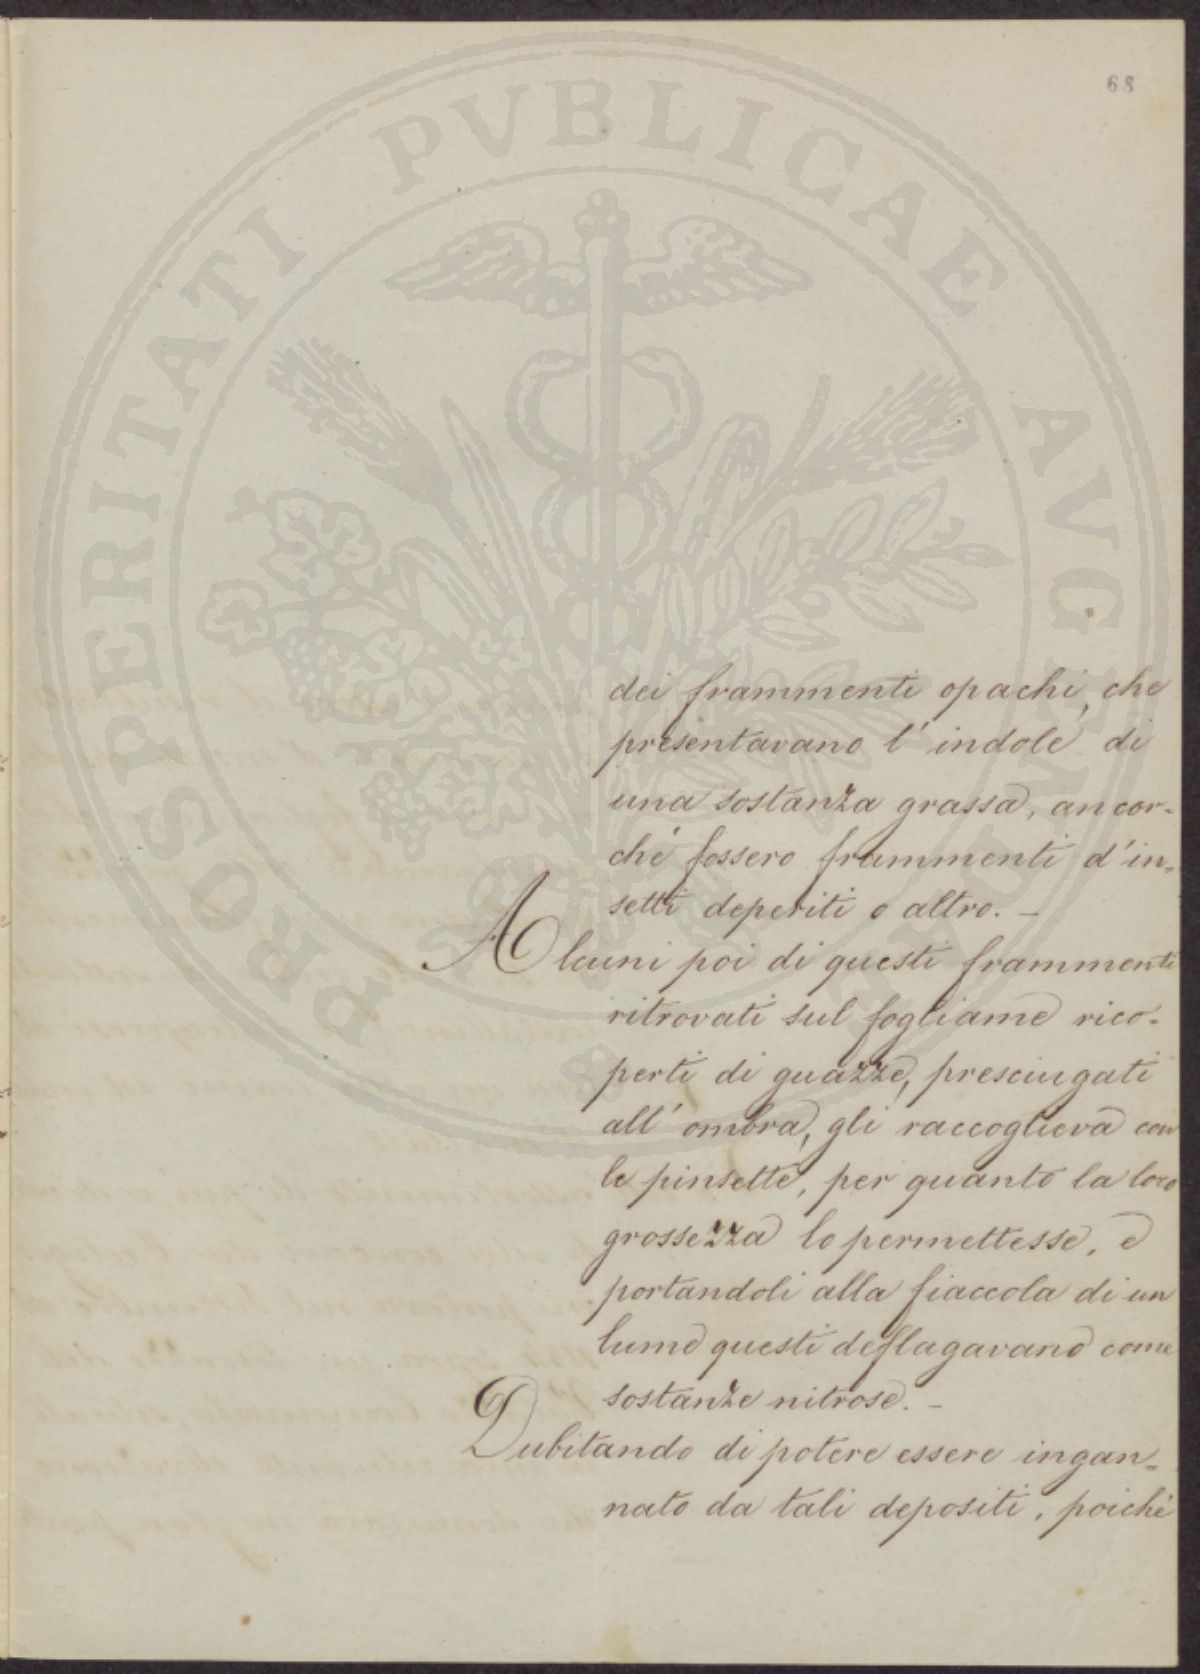 68
PROSPERITATI PUBLICAE AVGENDAE
dei frammenti opachi, che
presentavano l' indole di
una sostanza grassa, ancor-
chè fossero frammenti d'in-
setti deperiti o altro. -
Alcuni poi di questi frammenti
ritrovati sul fogliame rico-
perti di guazze, presciugati
all' ombra, gli raccoglieva con
le pinsette, per quanto la loro
grossezza lo permettesse, e
portandoli alla fiaccola di un
lume questi deflagavano come
sostanze nitrose. -
Dubitando di potere essere ingan-
nato da tali depositi, poichè